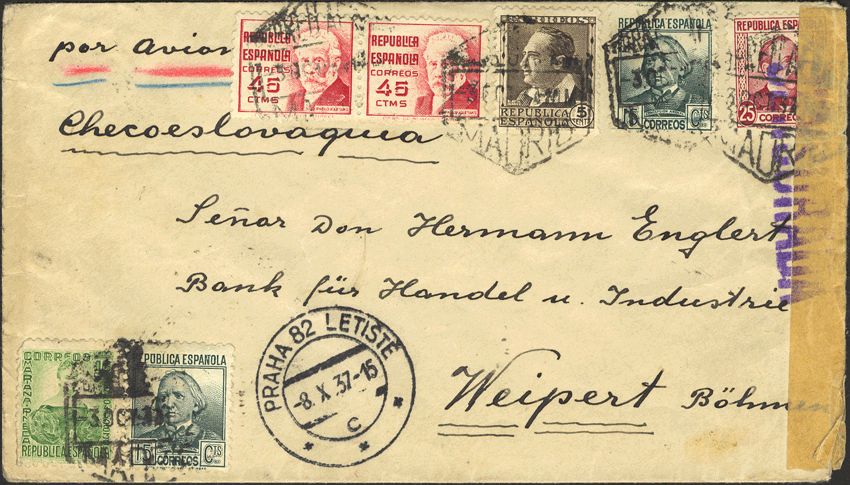 por avion
REPUBLICA ESPAÑOLA CORREOS 45 CTMS
REPUBLICA ESPAÑOLA CORREOS 45 CTMS
CORREOS REPUBLICA ESPAÑOLA 5
REPUBLICA ESPAÑOLA 15 CTS CORREOS
REPUBLICA ESPAÑOLA 25 CORREOS
MADRID
MADRID
Checoeslovaquia
Señor Don Hermann Englert
Bank für Handel u. Industrie
Weipert Böhmen
PRAHA 82 LETISTE
-8.X.37-15
C
CORREOS REPUBLICA ESPAÑOLA
REPUBLICA ESPAÑOLA 15 CTS CORREOS